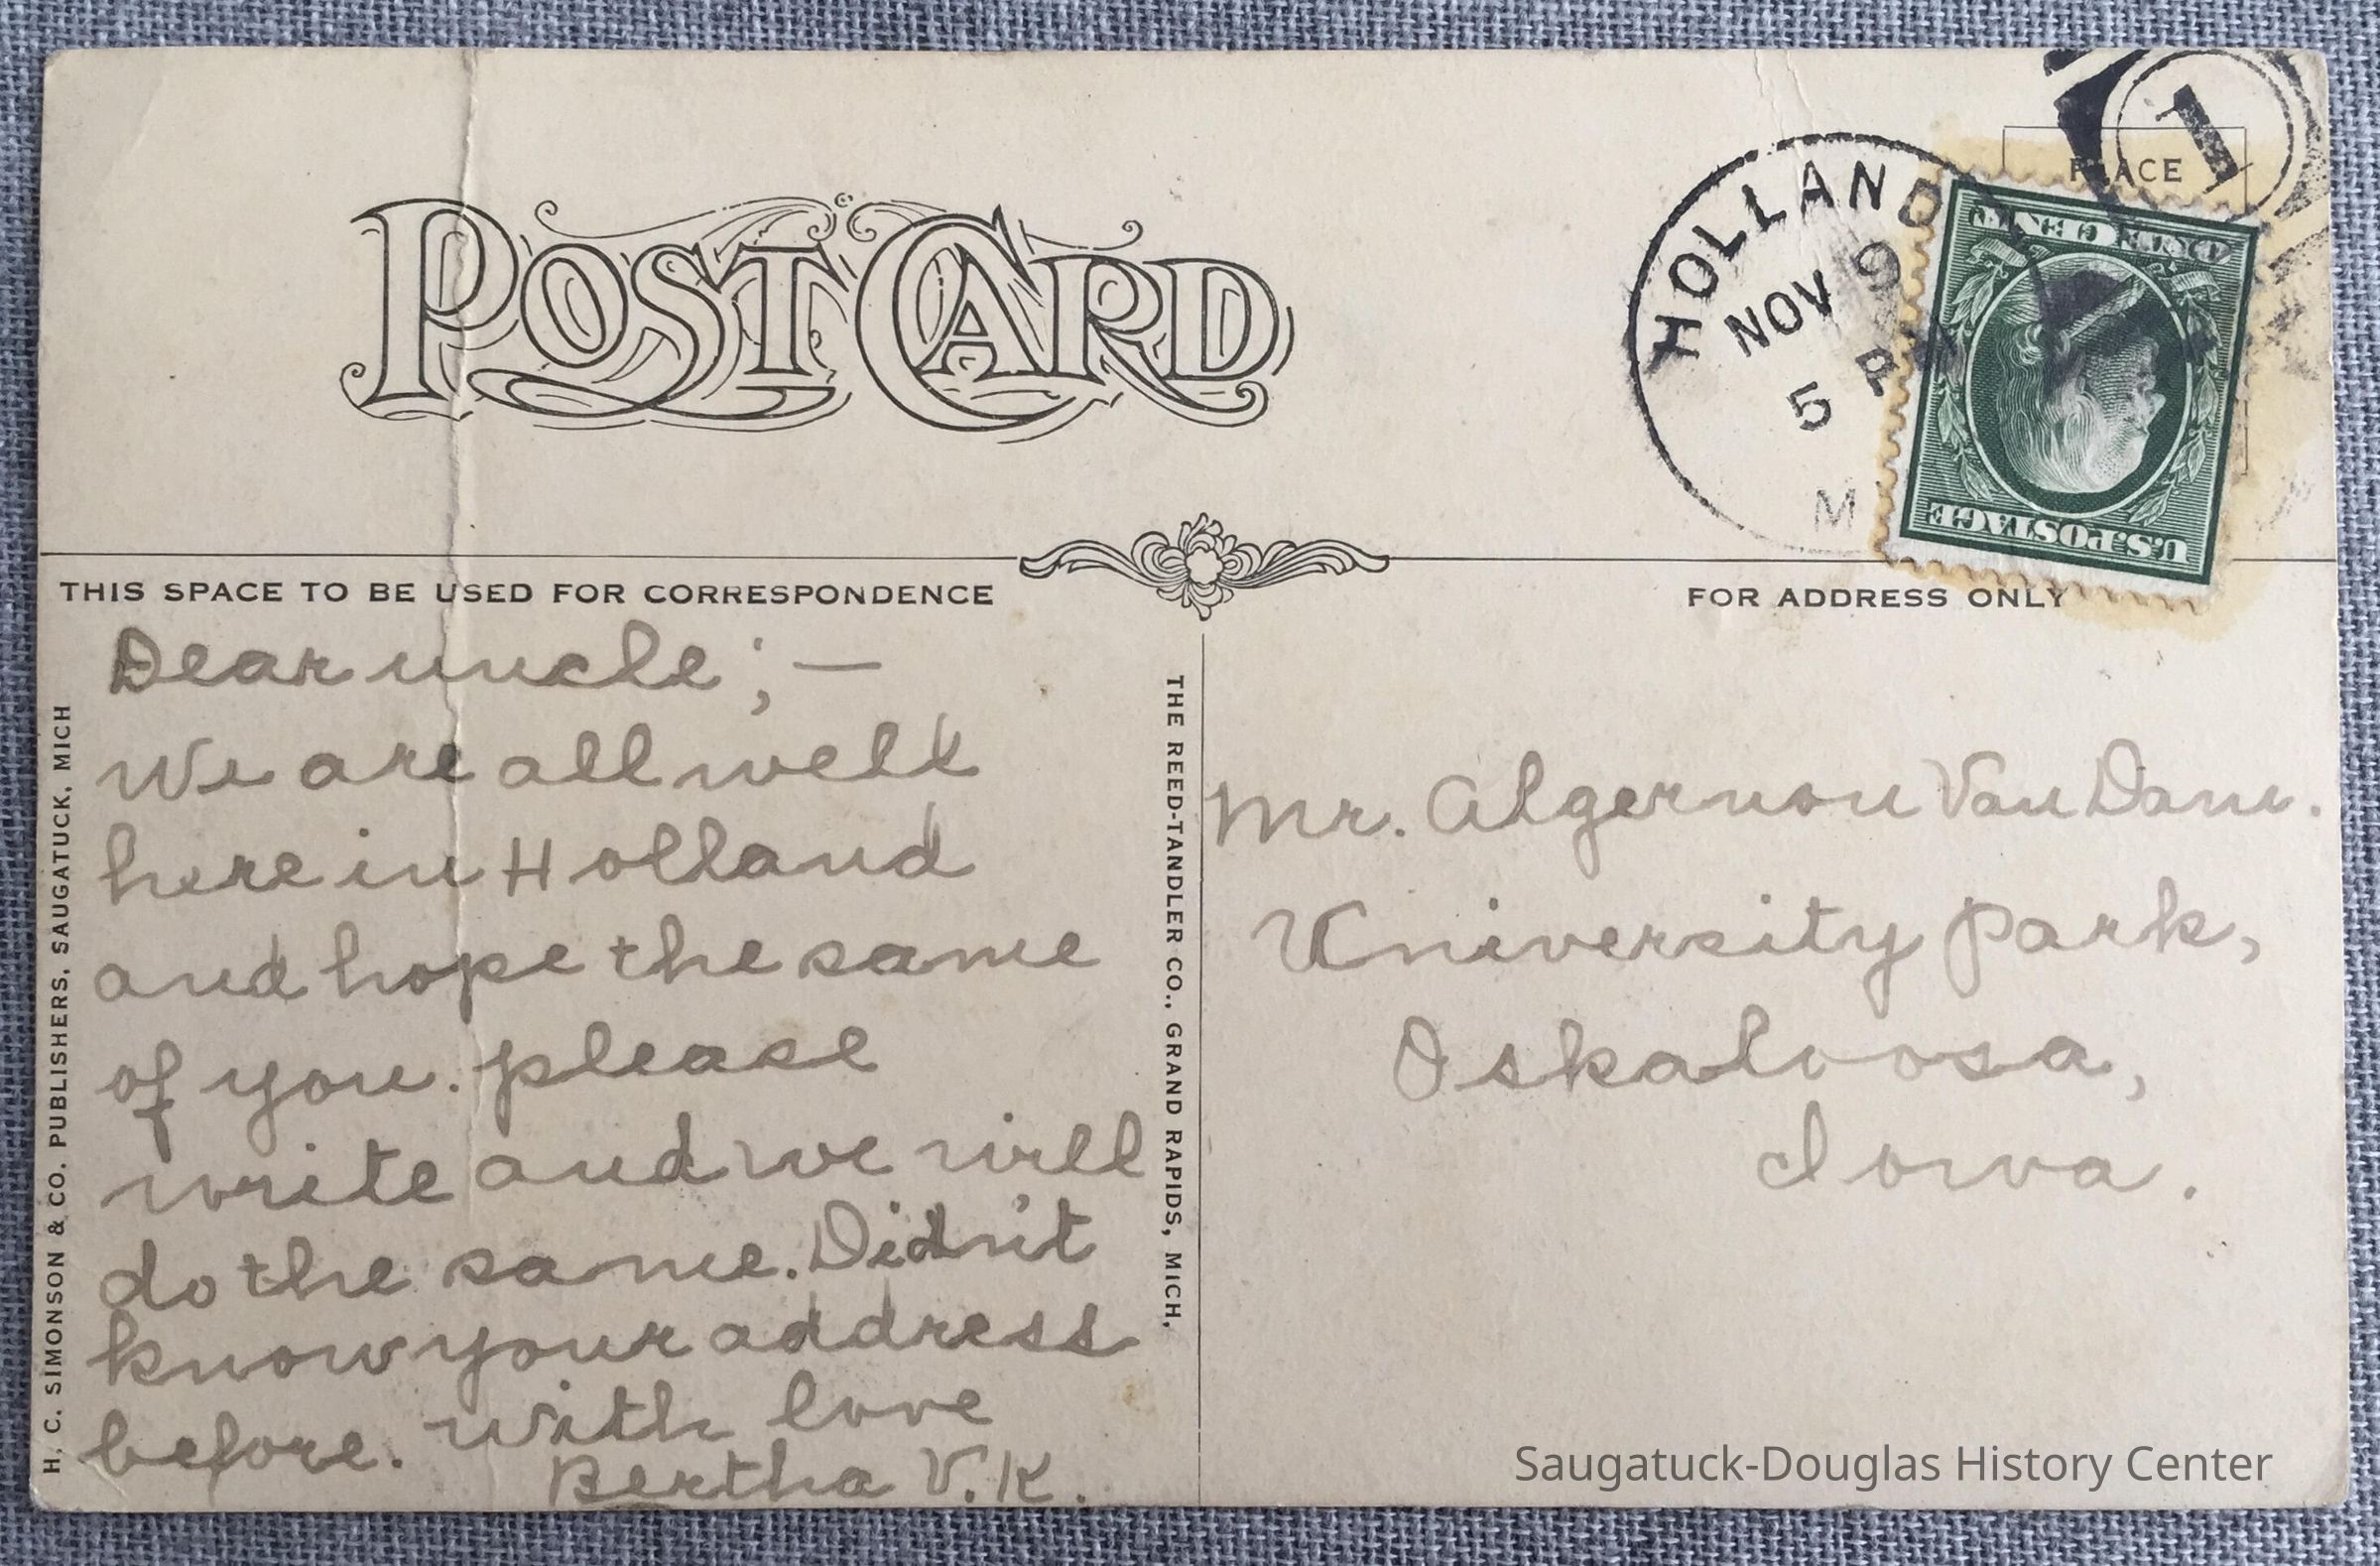 POST CARD
HOLLAND
NOV 9
5 P
M
1
PLACE
ONE CENT
U.S. POSTAGE
THIS SPACE TO BE USED FOR CORRESPONDENCE
FOR ADDRESS ONLY
H. C. SIMONSON & CO. PUBLISHERS, SAUGATUCK, MICH
Dear uncle; —
We are all well
here in Holland
and hope the same
of you. please
write and we will
do the same. Didn't
know your address
before. With love
Bertha V.K.
THE REED-TANDLER CO., GRAND RAPIDS, MICH.
Mr. Algernon Van Dam.
University Park,
Oskaloosa,
Iowa.
Saugatuck-Douglas History Center